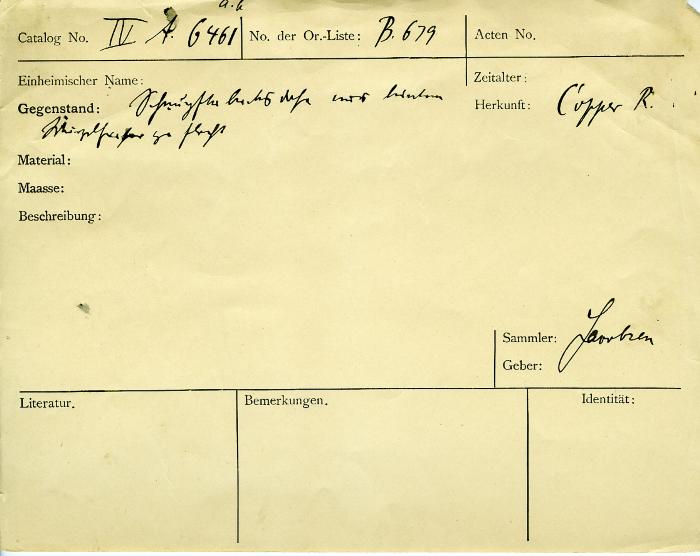 a.b
Catalog No. IV A. 6461 No. der Or.-Liste: B. 679 Acten No.
Einheimischer Name: Zeitalter:
Gegenstand: Schnupftabacksdose aus Herkunft: Copper R.
Material:
Maasse:
Beschreibung:
Sammler: Jacobsen
Geber:
Literatur. Bemerkungen. Identität: